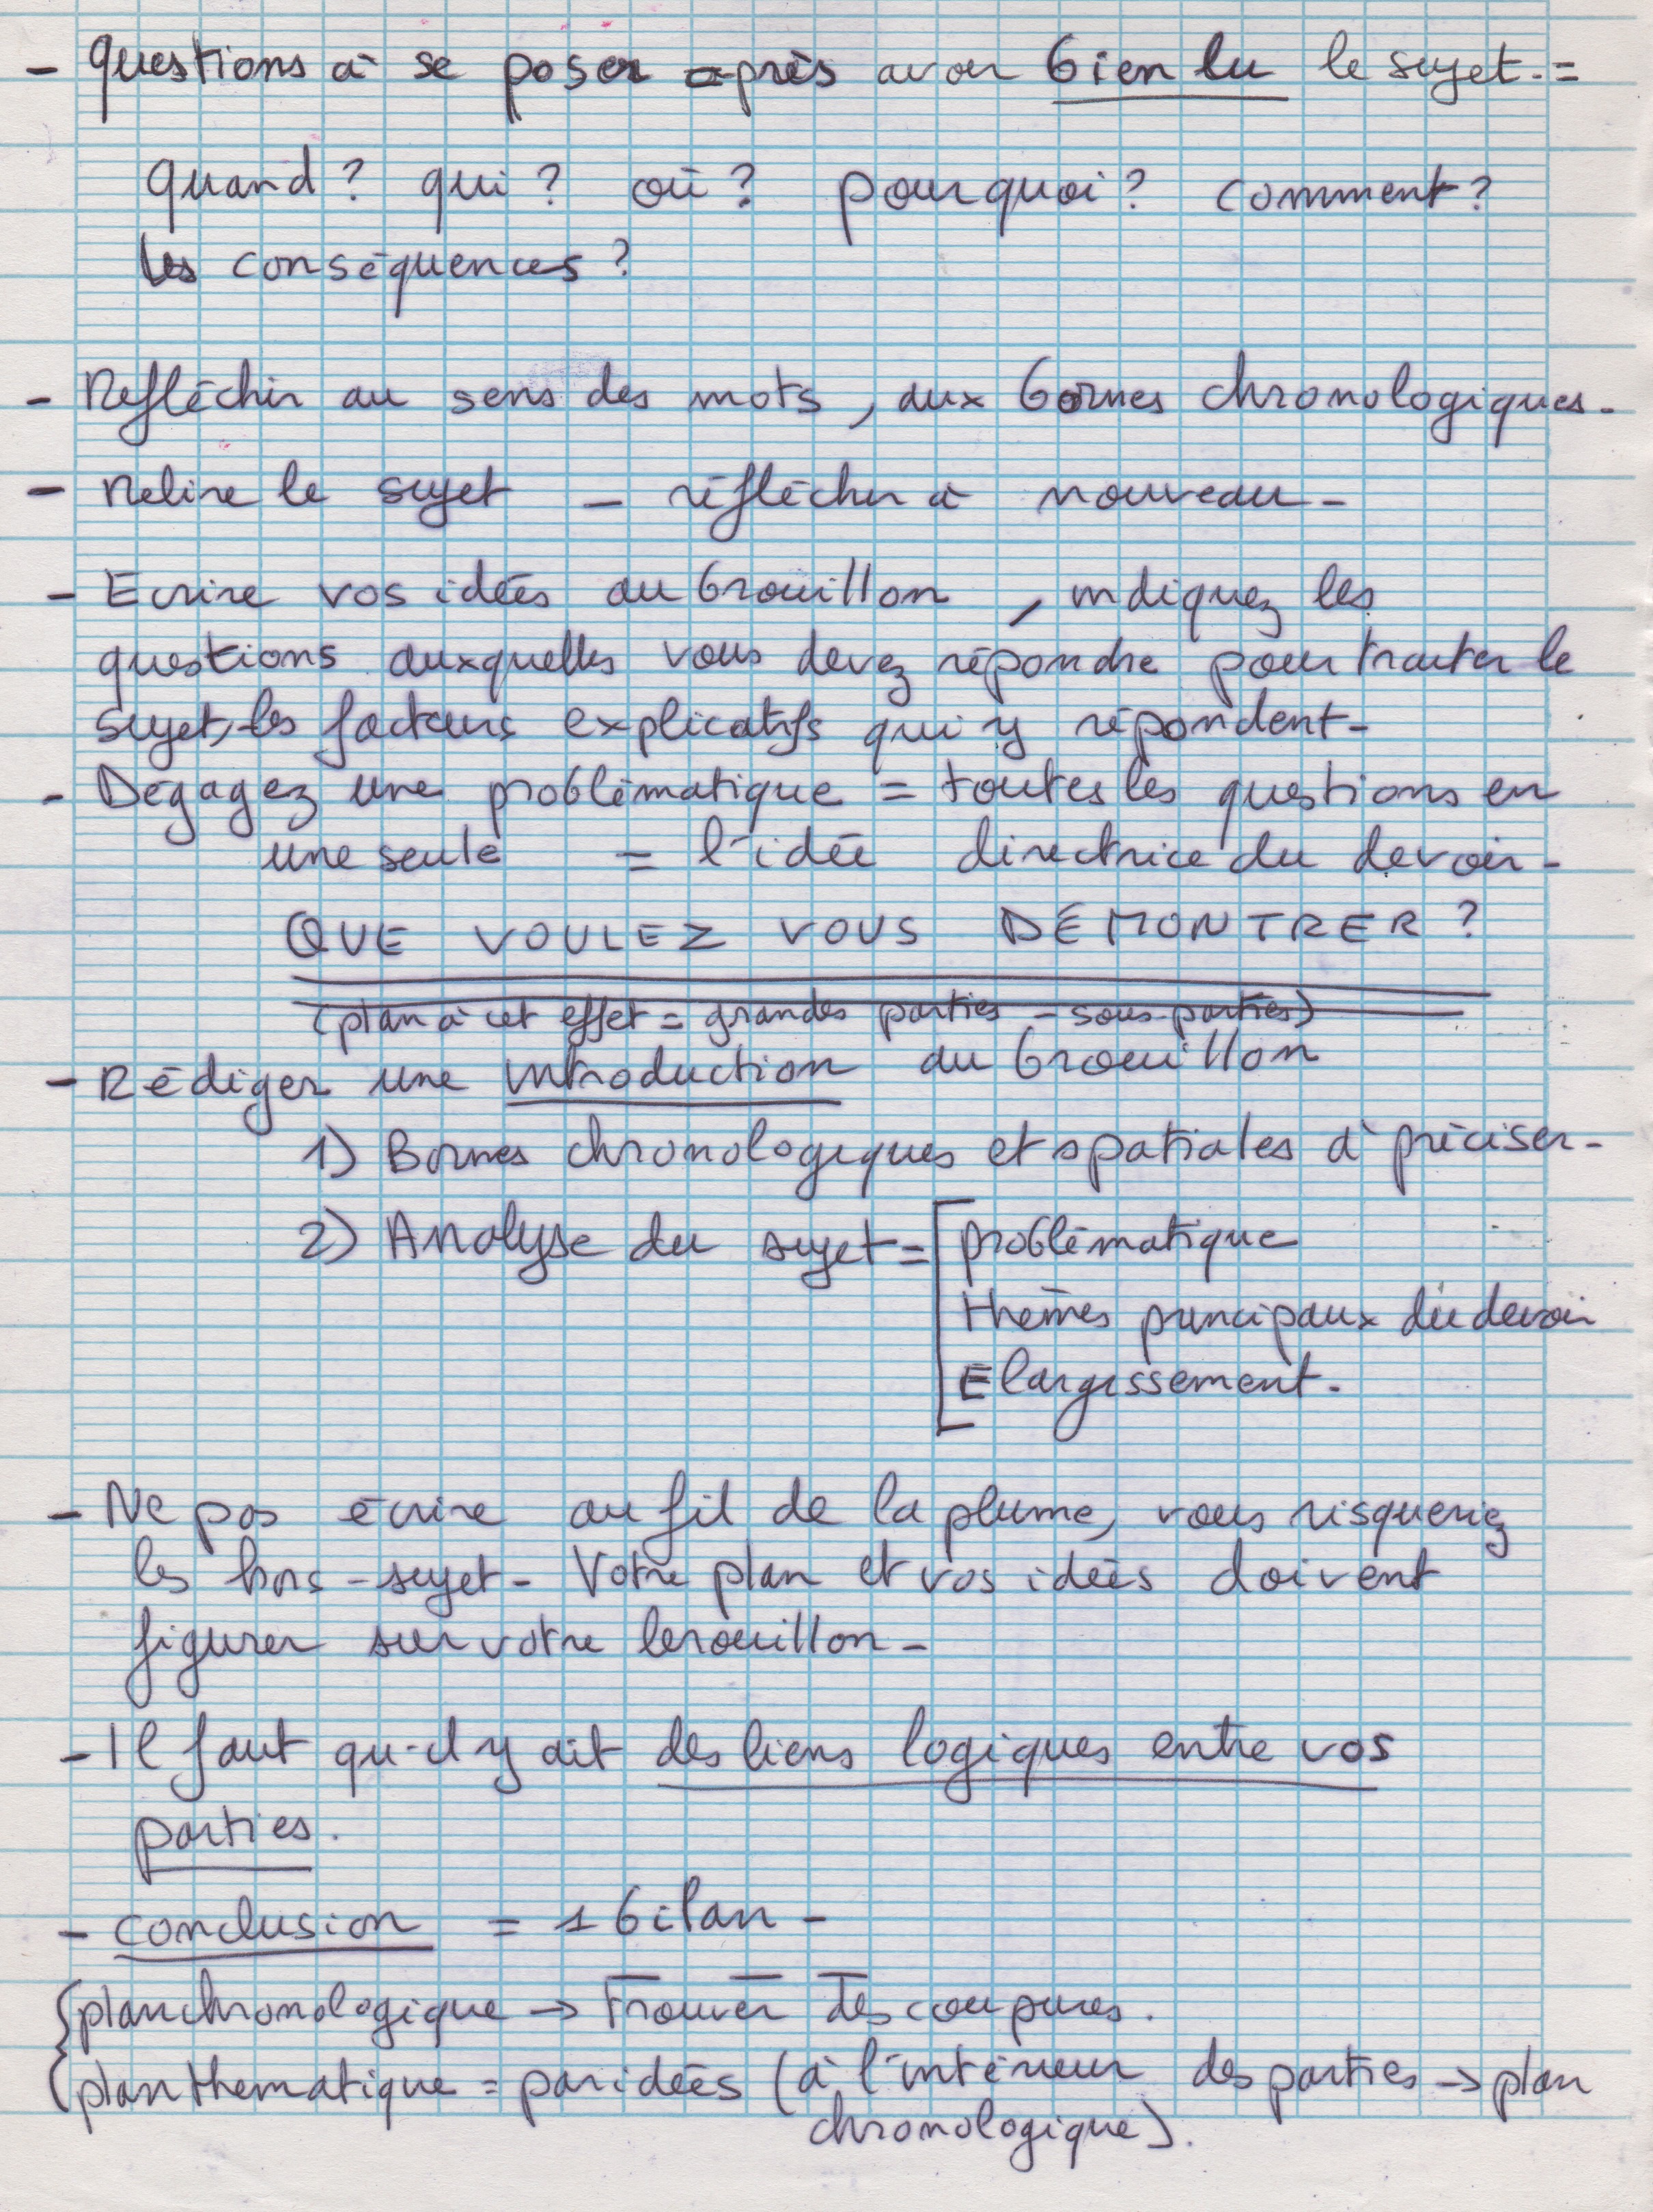 - Questions à se poser après avoir bien lu le sujet.=
Quand ? qui ? où ? pourquoi ? comment ?
les conséquences ?
- Réfléchir au sens des mots, aux bornes chronologiques-
- Relire le sujet - réfléchir à nouveau-
- Ecrire vos idées au brouillon, indiquez les
questions auxquelles vous devez répondre pour traiter le
sujet, les facteurs explicatifs qui y répondent-
- Dégagez une problématique = toutes les questions en
une seule = l'idée directrice du devoir-
QUE VOULEZ VOUS DÉMONTRER ?
(plan à cet effet = grandes parties - sous-parties)
- Rédiger une introduction au brouillon
1) Bornes chronologiques et spatiales à préciser-
2) Analyse du sujet = [problématique
thèmes principaux du devoir
Elargissement-
- Ne pas écrire au fil de la plume, vous risqueriez
les hors-sujet- Votre plan et vos idées doivent
figurer sur votre brouillon-
- Il faut qu'il y ait des liens logiques entre vos
parties.
- conclusion = 1 bilan -
{plan chronologique → Trouver des coupures.
{plan thématique = par idées (à l'intérieur des parties → plan
chronologique).